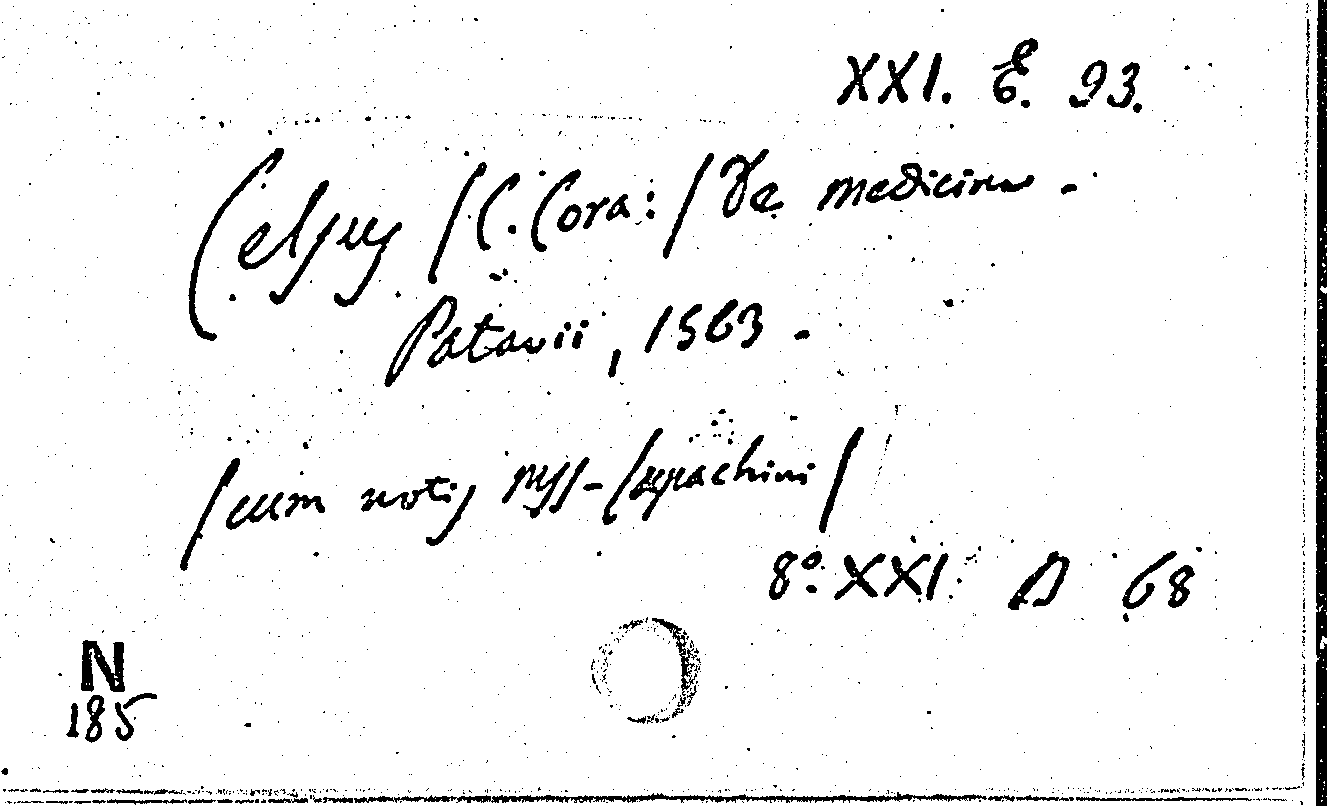 XXI. E. 93.
Celsus /C. Cora:/ De medicina -
Patavii, 1563 -
/cum notis mss-
8º. XXI. D 68
N
185